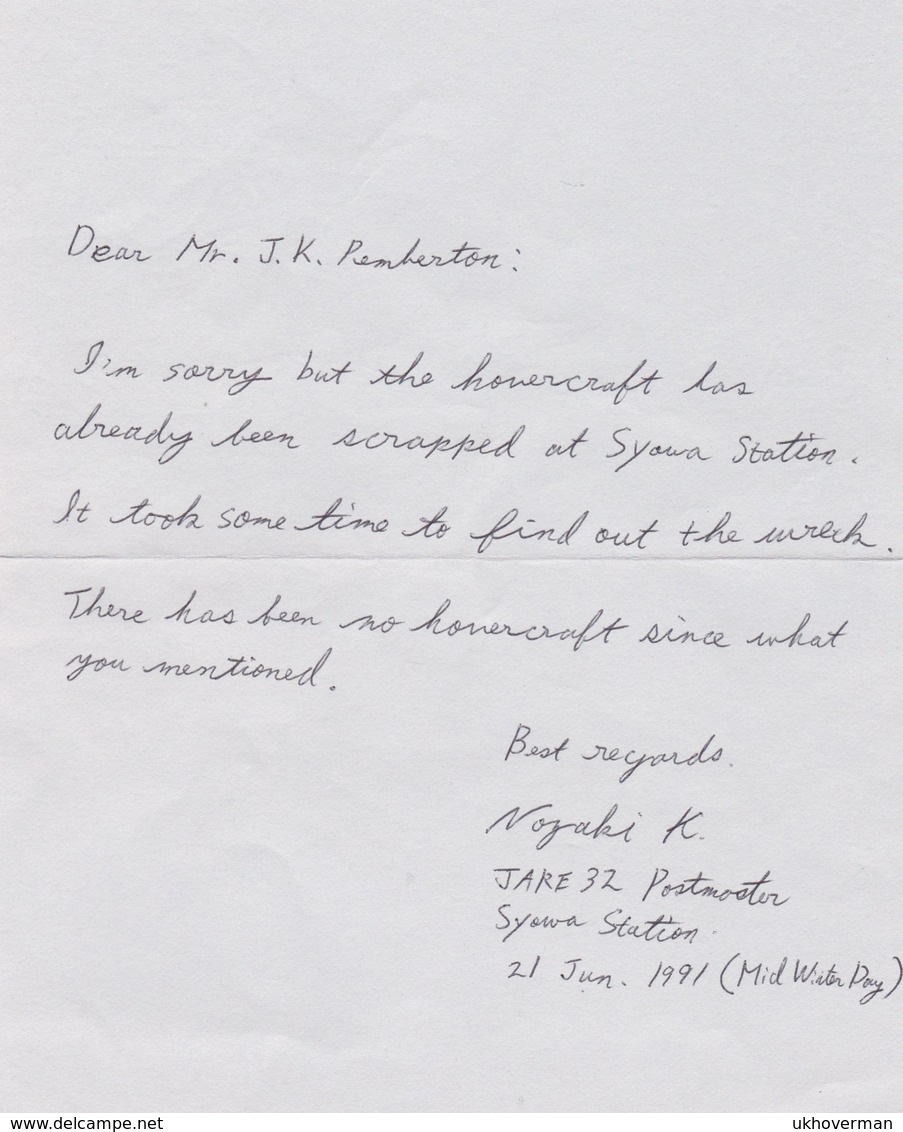 Dear Mr. J.K. Pemberton:
I'm sorry but the hovercraft has
already been scrapped at Syowa Station.
It took some time to find out the wreck.
There has been no hovercraft since what
you mentioned.
Best regards.
Nozaki K.
JARE 32 Postmaster
Syowa Station.
21 Jun. 1991 (Mid Winter Day)
www.delcampe.net
ukhoverman